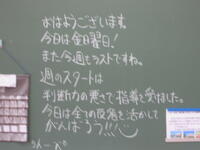 おはようございます。
今日は金曜日！
また今週もラストですね。
週のスタートは
判断力の悪さで指導を受けました。
今日は全ての反省を活かして
がんばろう!!!